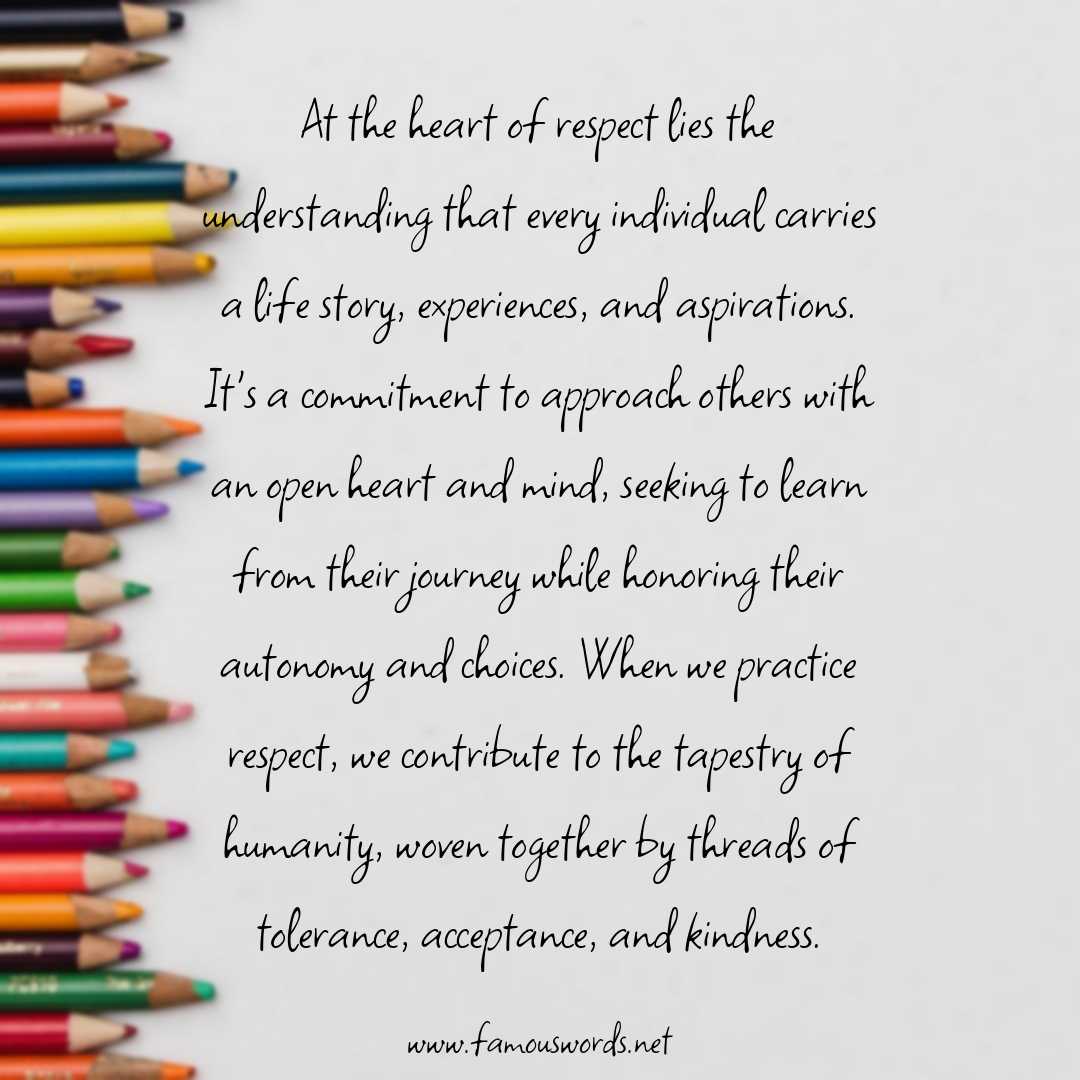 At the heart of respect lies the
understanding that every individual carries
a life story, experiences, and aspirations.
It's a commitment to approach others with
an open heart and mind, seeking to learn
from their journey while honoring their
autonomy and choices. When we practice
respect, we contribute to the tapestry of
humanity, woven together by threads of
tolerance, acceptance, and kindness.
www.famouswords.net